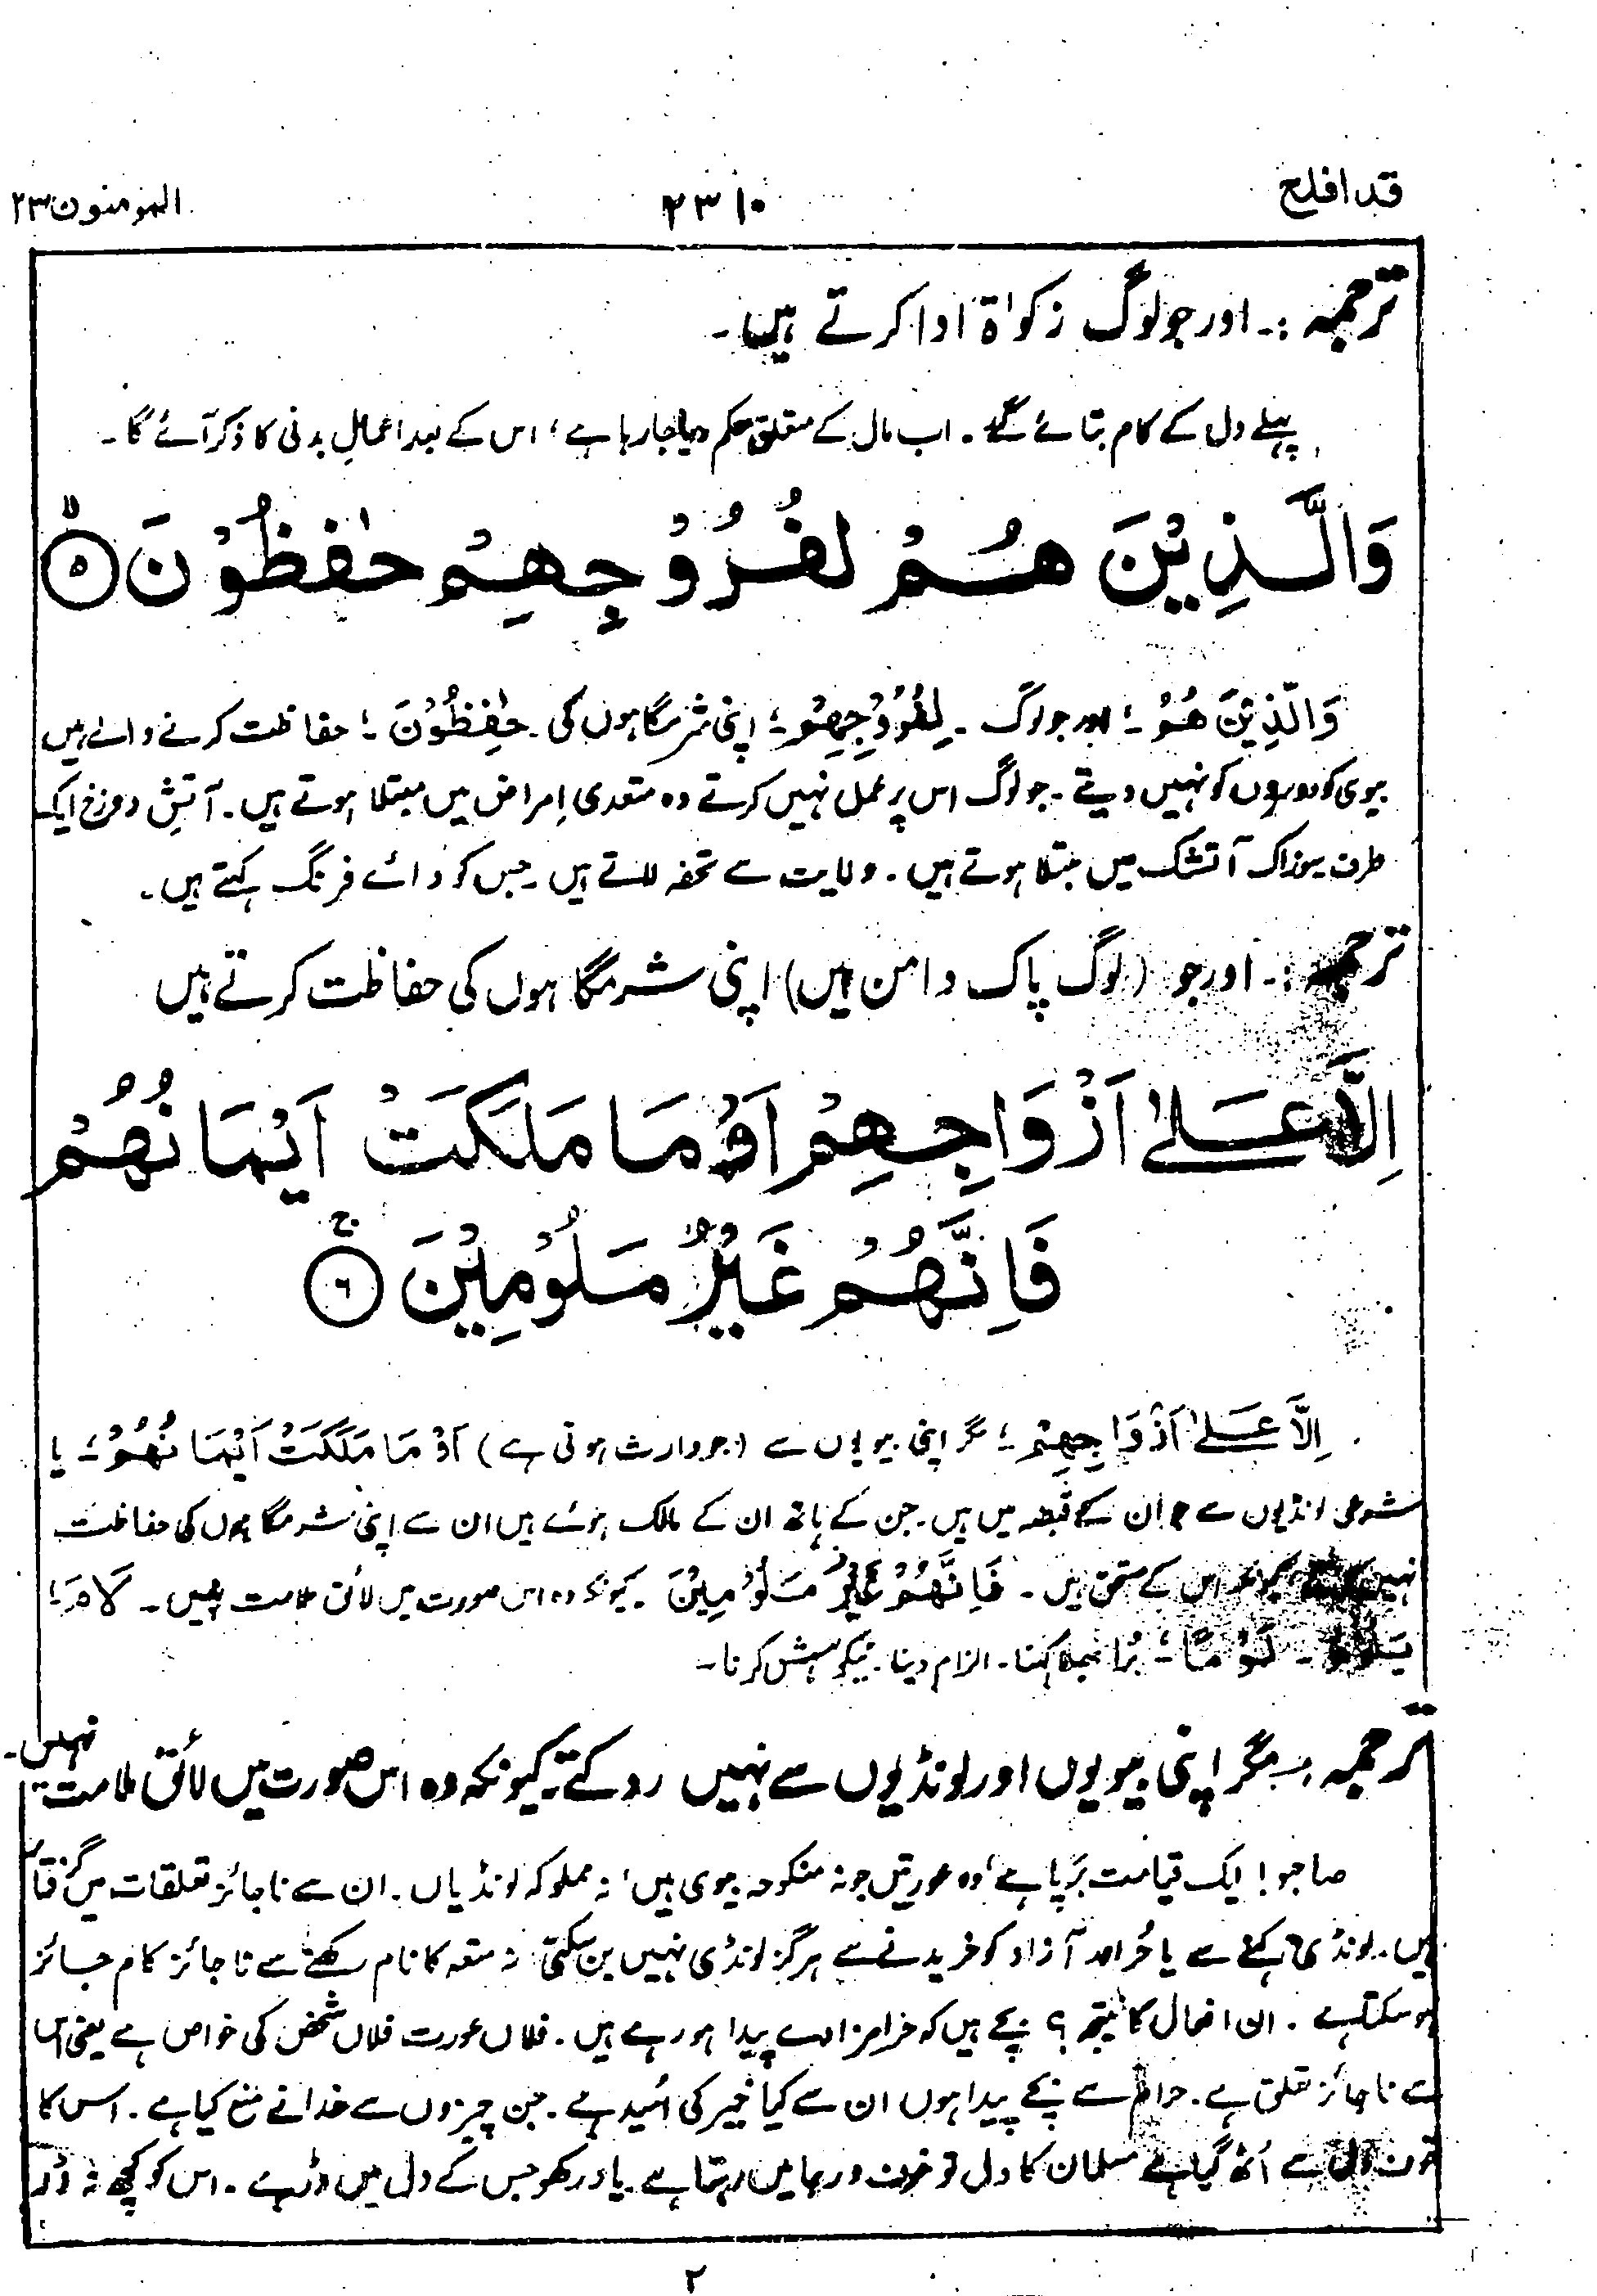 قد افلح
۲۳۱۰
المؤمنون ۲۳
ترجمہ :۔ اور جو لوگ زکواٰة ادا کرتے ہیں ۔
پہلے دل کے کام بتائے گئے ۔ اب مال کے متعلق حکم دیا جا رہا ہے ؛ اس کے بعد اعمالِ بدنی کا ذکر آئے گا ۔
وَالَّذِيْنَ هُمْ لِفُرُوْجِهِمْ حٰفِظُوْنَ ۙ ﴿۵﴾
وَالَّذِيْنَ هُمْ ؛ اور جو لوگ ۔ لِفُرُوْجِهِمْ ؛ اپنی شرمگاہوں کی ۔ حٰفِظُوْنَ ؛ حفاظت کرنے والے ہیں
بیوی کو دوسروں کو نہیں دیتے ۔ جو لوگ اس پر عمل نہیں کرتے وہ متعدی اِمراض میں مبتلا ہوتے ہیں ۔ آتشِ دوزخ ایک
طرف سوزاک آتشک میں مبتلا ہوتے ہیں ۔ ولایت سے تحفہ لاتے ہیں ۔ جس کو دائے فرنگ کہتے ہیں ۔
ترجمہ :۔ اور جو (لوگ پاک دامن ہیں) اپنی شرمگاہوں کی حفاظت کرتے ہیں
اِلَّا عَلٰٓى اَزْوَاجِهِمْ اَوْ مَا مَلَكَتْ اَيْمَانُهُمْ
فَاِنَّهُمْ غَيْرُ مَلُوْمِيْنَ ۚ ﴿۶﴾
اِلَّا عَلٰٓى اَزْوَاجِهِمْ ؛ مگر اپنی بیویوں سے (جو وارث ہوتی ہے) اَوْ مَا مَلَكَتْ اَيْمَانُهُمْ ؛ یا
شرعی لونڈیوں سے جو ان کے قبضہ میں ہیں ۔ جن کے ہاتھ ان کے مالک ہوئے ہیں ان سے اپنی شرمگاہوں کی حفاظت
نہیں اس کے مستحق ہیں ۔ فَاِنَّهُمْ غَيْرُ مَلُوْمِيْنَ ۔ کیونکہ وہ اس صورت میں لائق ملامت نہیں ۔ لَامَ ؛
يَلُوْمُ ۔ لَوْمًا ؛ بُرا بھلا کہنا ۔ الزام دینا ۔ نکوہش کرنا ۔
ترجمہ :۔ مگر اپنی بیویوں اور لونڈیوں سے نہیں روکتے ۔ کیونکہ وہ اس صورت میں لائق ملامت نہیں ۔
صاحبو ! ایک قیامت بَرپا ہے ، وہ عورتیں جو نہ منکوحہ بیوی ہیں ، نہ مملوکہ لونڈیاں ۔ ان سے ناجائز تعلقات میں گرفتار
ہیں ۔ لونڈی کہنے سے یا حُر اور آزاد کو خریدنے سے ہرگز لونڈی نہیں بن سکتی نہ متعہ کا نام رکھنے سے ناجائز کام جائز
ہو سکتا ہے ۔ ان افعال کا نتیجہ ؟ بچے ہیں کہ حرامزادے پیدا ہو رہے ہیں ۔ فلاں عورت فلاں شخص کی خواص ہے یعنی اس
سے ناجائز تعلق ہے ۔ حرام سے بچے پیدا ہوں ان سے کیا خیر کی اُمید ہے ۔ جن چیزوں سے خدا نے منع کیا ہے ۔ اس کا
خوف دل سے اُٹھ گیا ہے مسلمان کا دل تو خوف و رجا میں رہتا ہے ۔ یاد رکھو جس کے دل میں ڈر ہے ۔ اس کو کچھ نہ ڈر
۲